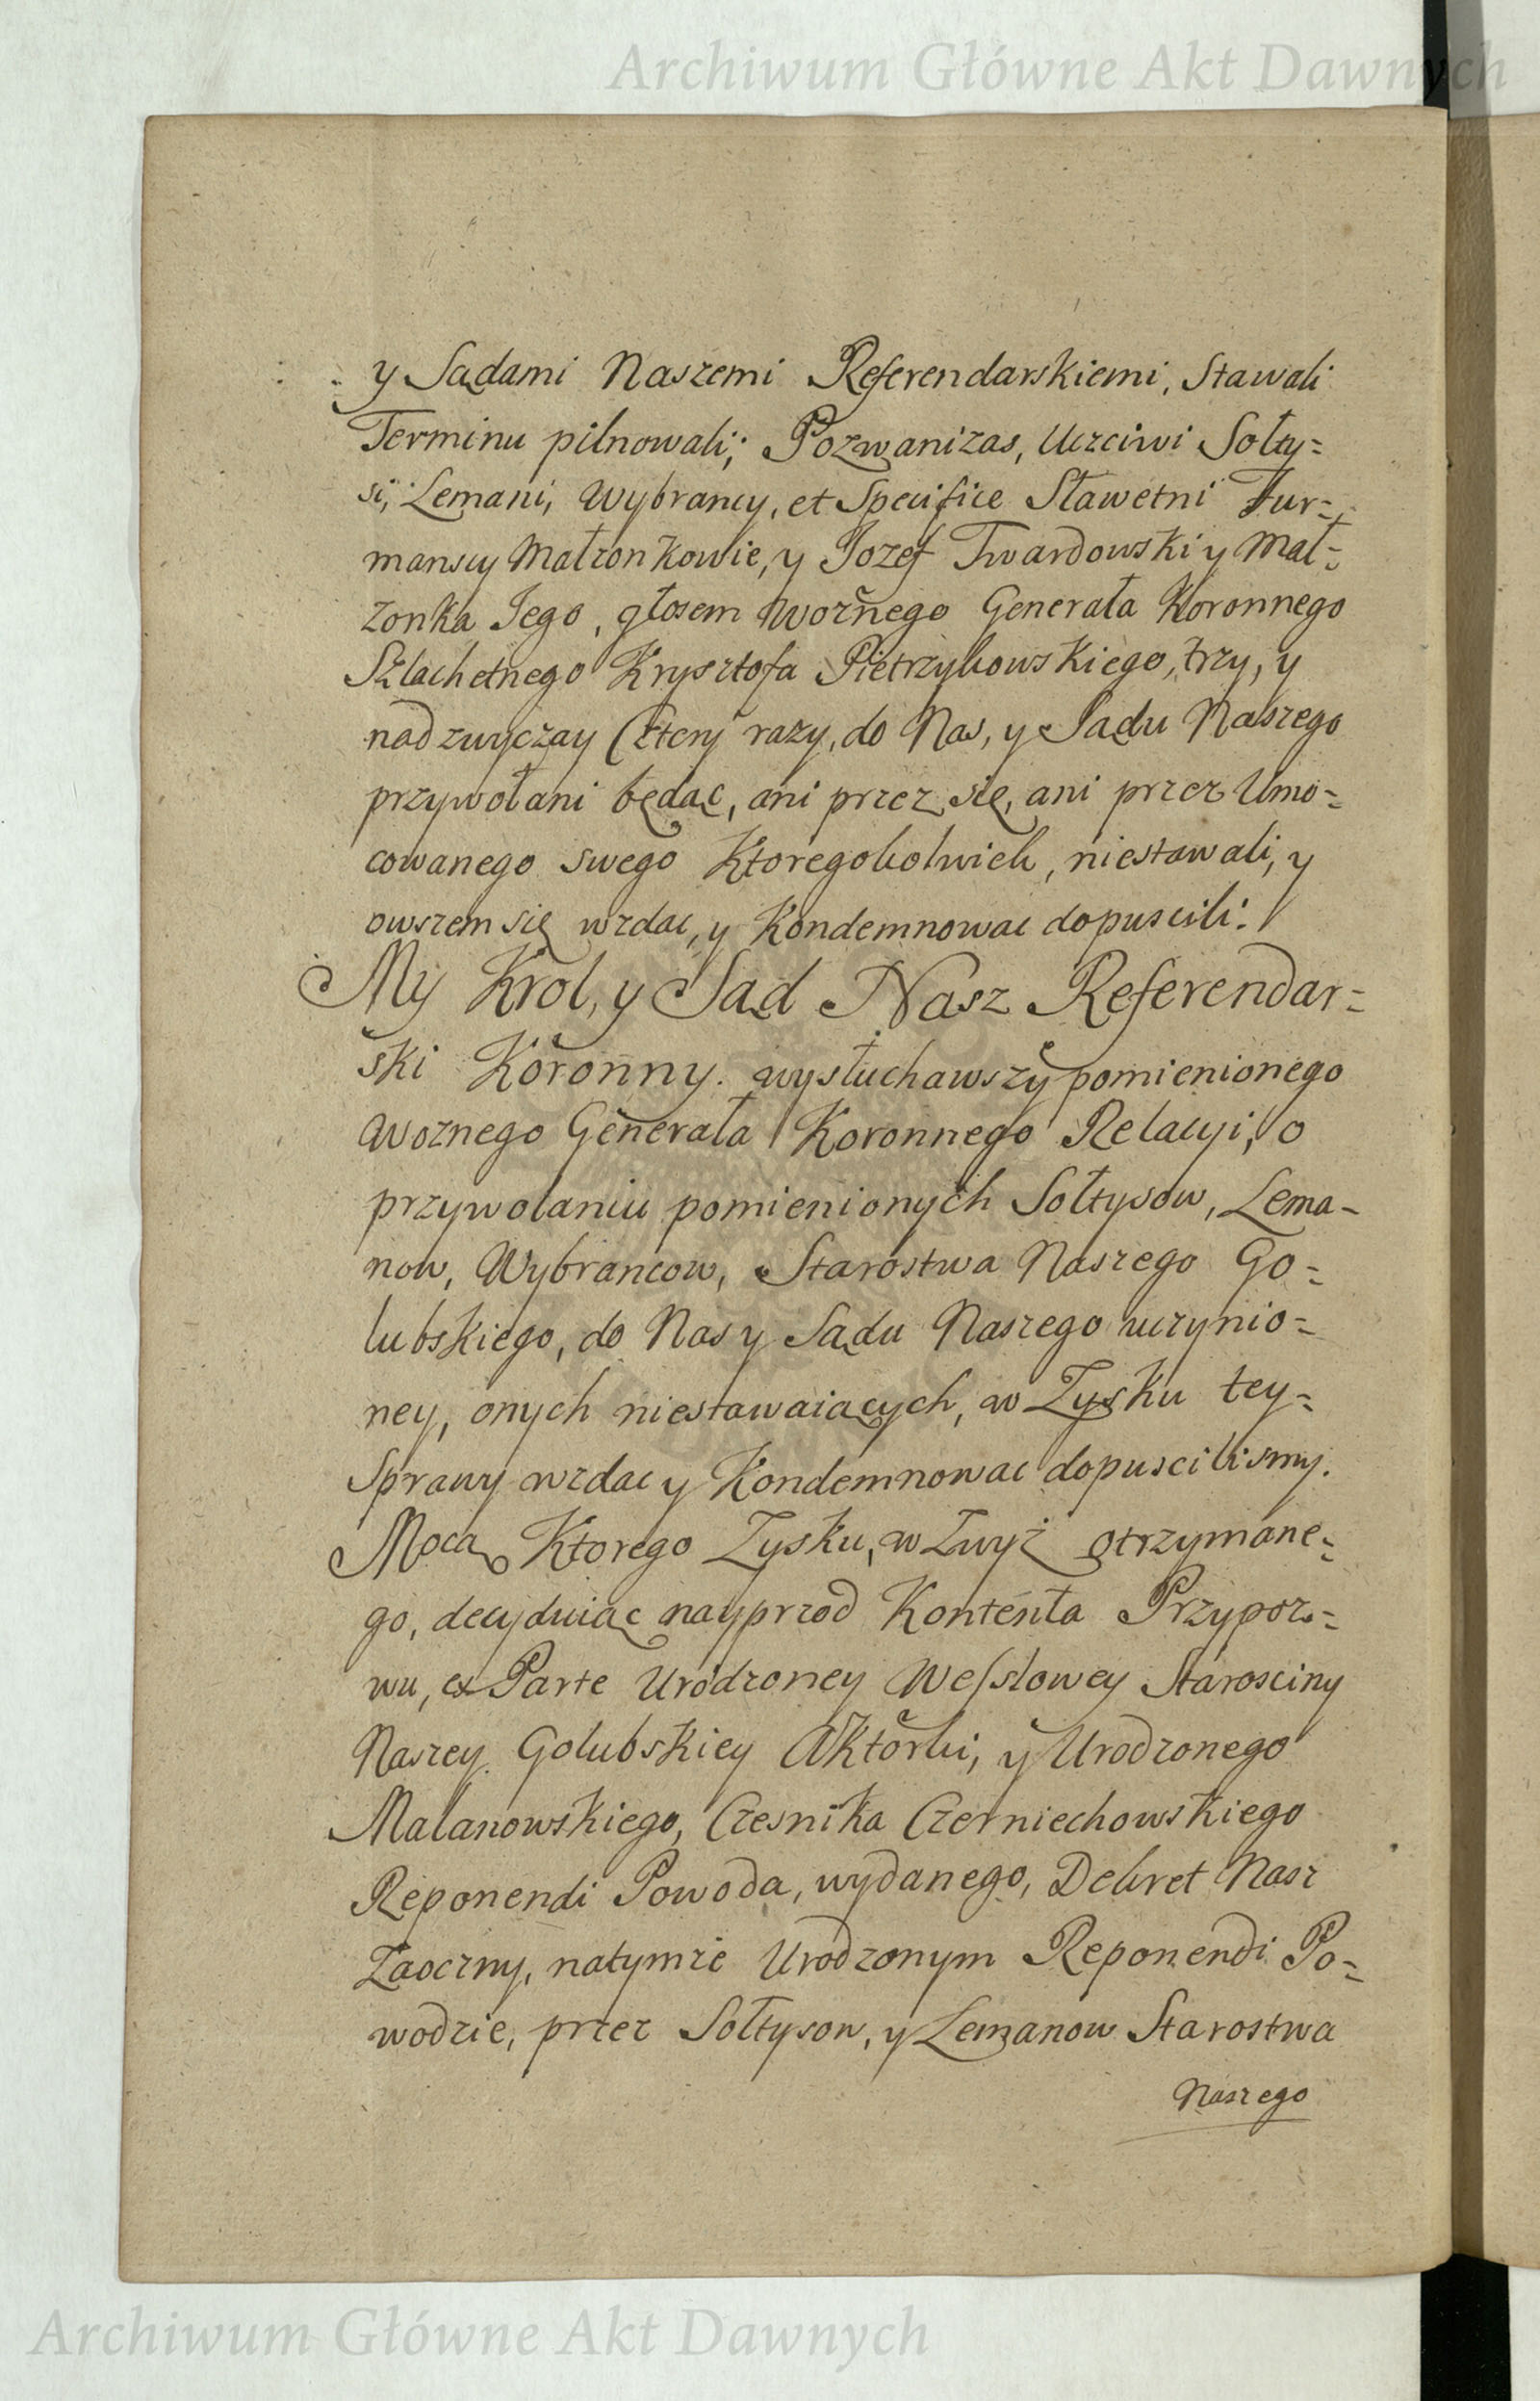 Archiwum Główne Akt Dawnych
y Sądami Naszemi Referendarskiemi, Stawali
Terminu pilnowali; Pozwanizas, Uczciwi Sołty=
si, Lemani, Wybrancy, et Specifice Sławetni Fur=
manscy Małzonkowie, y Jozef Twardowski y Mał=
zonka Jego, głosem Woznego Generała Koronnego
Szlachetnego Krysztofa Pietrzykowskiego, trzy, y
nadzwyczay Cztery razy, do Nas, y Sądu Naszego
przywołani będąc, ani przez się, ani przez Umo=
cowanego swego Ktoregokolwiek, niestawali, y
owszem się wzdac, y Kondemnowac dopuscili.
My Krol, y Sąd Nasz Referendar=
ski Koronny. wysłuchawszy pomienionego
Woznego Generała Koronnego Relacyi, o
przywolaniu pomienionych Sołtysow, Lema-
now, Wybrancow, Starostwa Naszego Go=
lubskiego, do Nas y Sądu Naszego uczynio=
ney, onych niestawaiących, w Zysku tey=
Sprawy wzdac y Kondemnowac dopuscilismy.
Mocą Ktorego Zysku, w Zwyż otrzymane=
go, decyduiąc nayprzod Kontenta Przypoz=
wu, ex Parte Urodzoney Wesslowey Starosciny
Naszey Golubskiey Aktorki, y Urodzonego
Malanowskiego, Czesnika Czerniechowskiego
Reponendi Powoda, wydanego, Dekret Nasz
Zaoczny, natymze Urodzonym Reponendi Po=
wodzie, przez Sołtysow, y Lemanow Starostwa
Naszego
Archiwum Główne Akt Dawnych